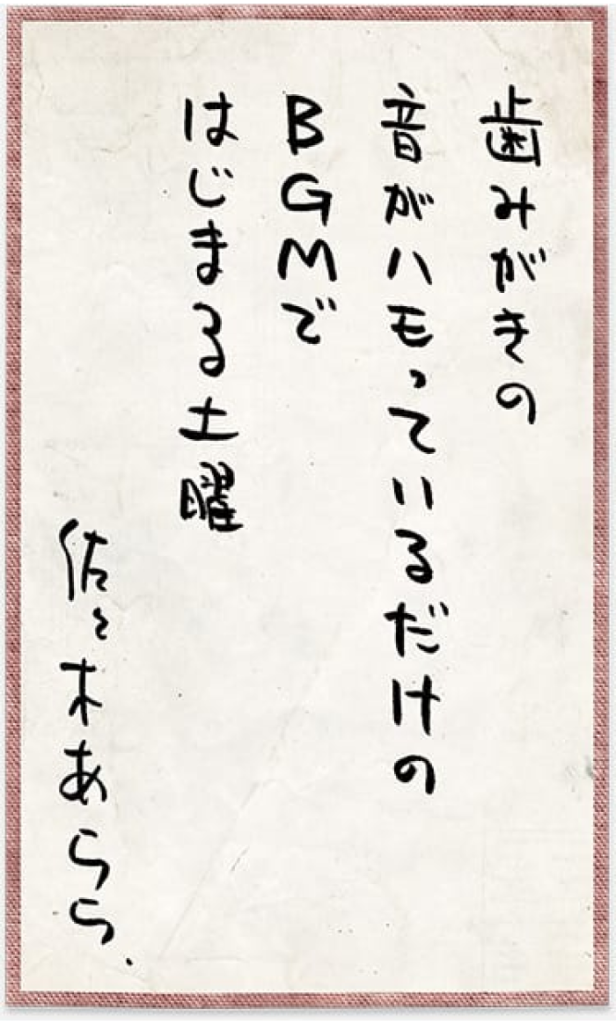 歯みがきの
音がハモっているだけの
BGMで
はじまる土曜
佐々木あらら.